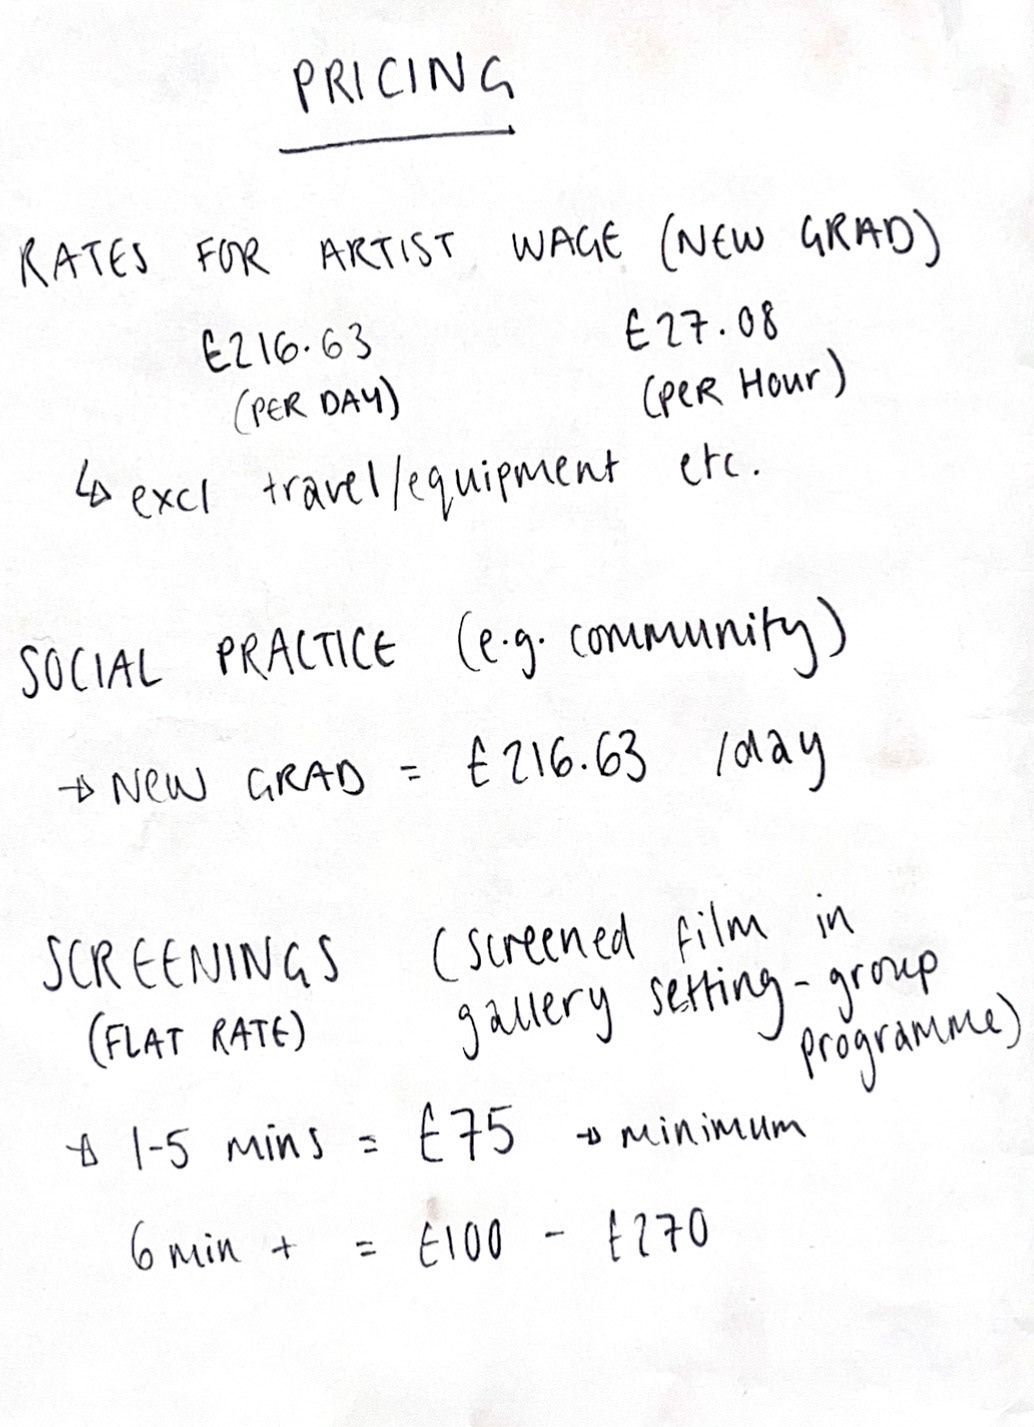 PRICING
RATES FOR ARTIST WAGE (NEW GRAD)
£216.63 £27.08
(PER DAY) (PER HOUR)
↳ excl travel/equipment etc.
SOCIAL PRACTICE (e.g. community)
→ NEW GRAD = £216.63 /day
SCREENINGS (screened film in
(FLAT RATE) gallery setting - group
programme)
→ 1-5 mins = £75 → minimum
6 min + = £100 - £270